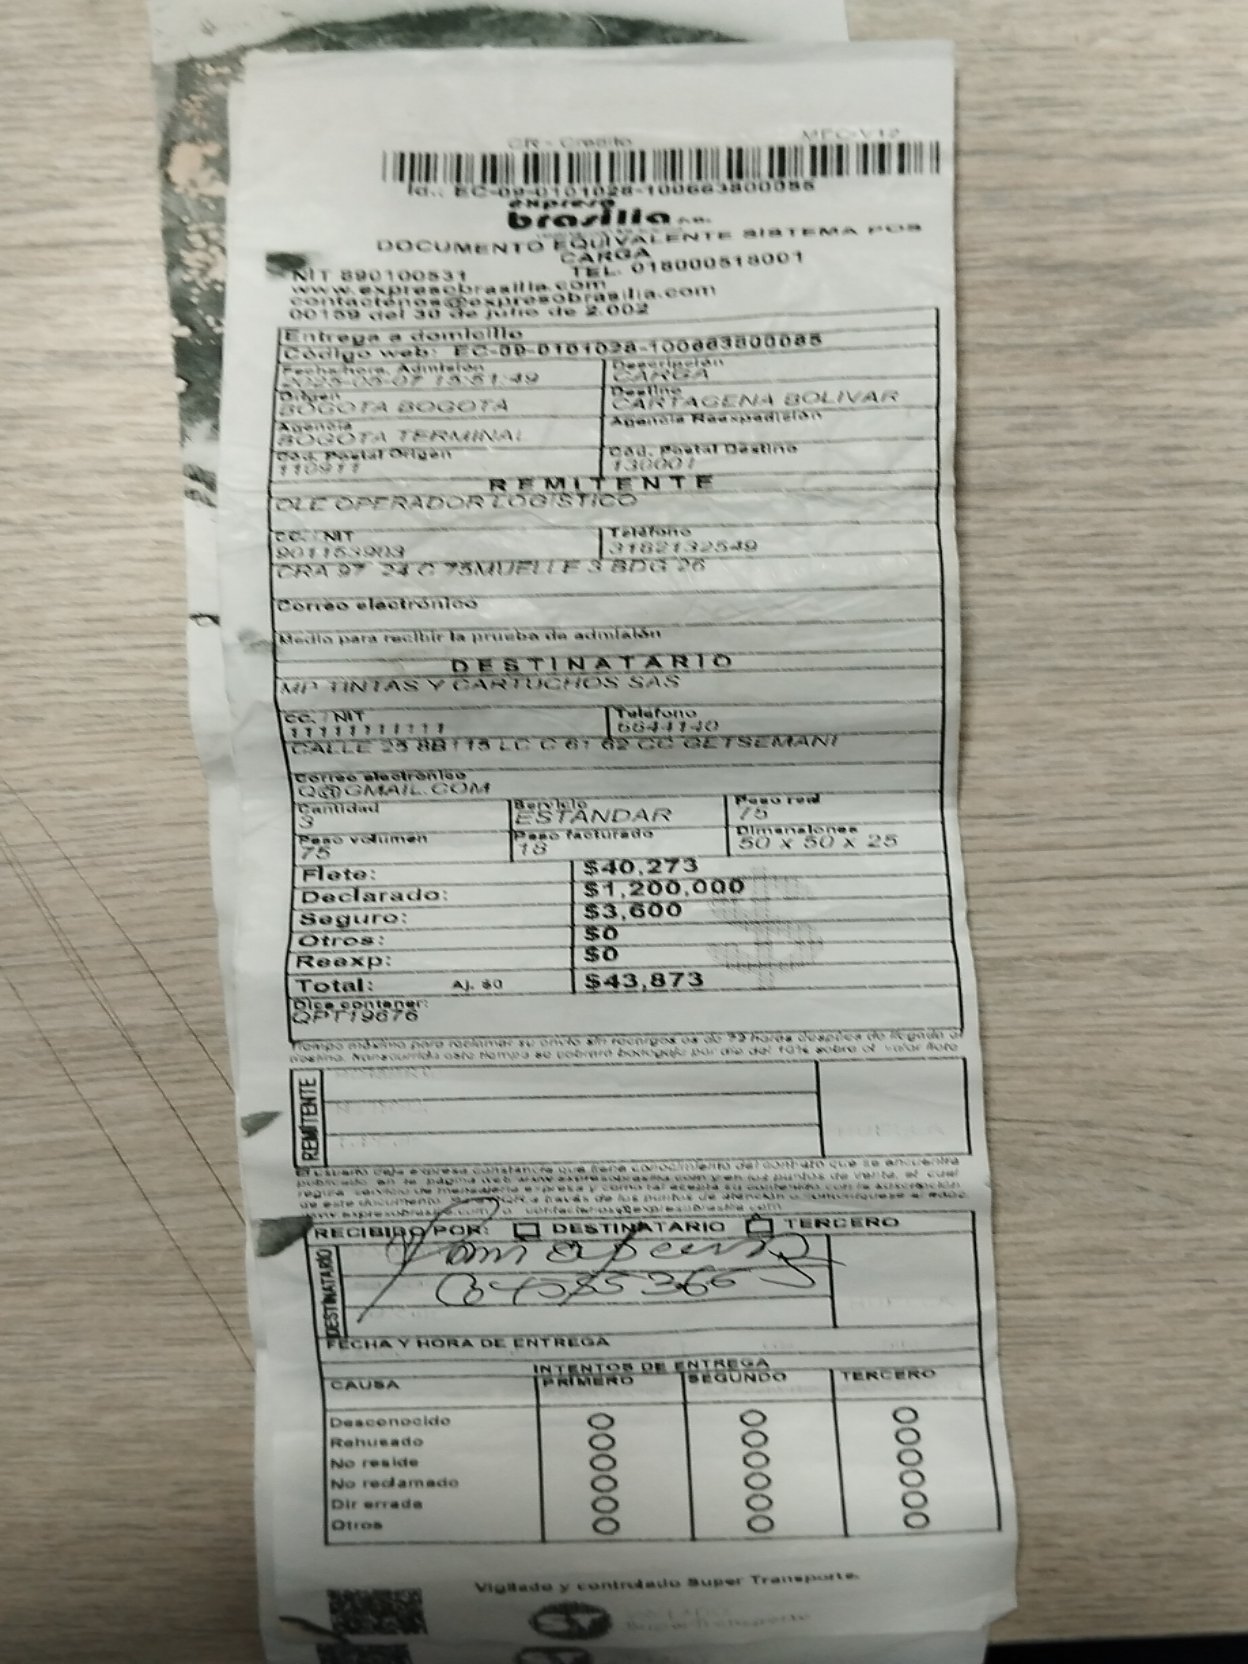 CR - Credito MEC-V12
Id.: EC-09-0101028-100663800085
expreso
brasilia s.a.
DOCUMENTO EQUIVALENTE SISTEMA POS
CARGA
NIT 890100531 TEL. 018000518001
www.expresobrasilia.com
contactenos@expresobrasilia.com
00159 del 30 de julio de 2.002
Entrega a domicilio
Código web: EC-09-0101028-100663800085
Fecha/hora. Admisión Descripción
2025-05-07 15:51:49 CARGA
Origen Destino
BOGOTA BOGOTA CARTAGENA BOLIVAR
Agencia Agencia Reexpedición
BOGOTA TERMINAL
Cód. Postal Origen Cód. Postal Destino
110911 130001
REMITENTE
OLE OPERADOR LOGISTICO
CC. / NIT Teléfono
901153903 3182132549
CRA 97 24 C 75MUELLE 3 BDG 26
Correo electrónico
Medio para recibir la prueba de admisión
DESTINATARIO
MP TINTAS Y CARTUCHOS SAS
CC. / NIT Teléfono
11111111111 6644140
CALLE 25 8B 115 LC C 61 62 CC GETSEMANI
Correo electrónico
Q@GMAIL.COM
Cantidad Servicio Peso real
3 ESTANDAR 75
Peso volumen Peso facturado Dimensiones
75 18 50 x 50 x 25
Flete: $40,273
Declarado: $1,200,000
Seguro: $3,600
Otros: $0
Reexp: $0
Total: Aj. $0 $43,873
Dice contener:
QPT19676
Tiempo máximo para reclamar su envío sin recargos es de 72 horas después de llegado a
destino. Transcurrido este tiempo se cobrará bodegaje por día del 10% sobre el valor flete
REMITENTE
El usuario deja expresa constancia que tiene conocimiento del contrato que se encuentra
publicado en la página web www.expresobrasilia.com y en los puntos de venta, el cual
regirá servicio de mensajería expresa y como tal acepta su contenido con la suscripción
de este documento. PQR a través de los puntos de atención o comuníquese al
www.expresobrasilia.com o contactenos@expresobrasilia.com
RECIBIDO POR: DESTINATARIO TERCERO
DESTINATARIO
FECHA Y HORA DE ENTREGA
INTENTOS DE ENTREGA
CAUSA PRIMERO SEGUNDO TERCERO
Desconocido
Rehusado
No reside
No reclamado
Dir errada
Otros
Vigilado y controlado Super Transporte.